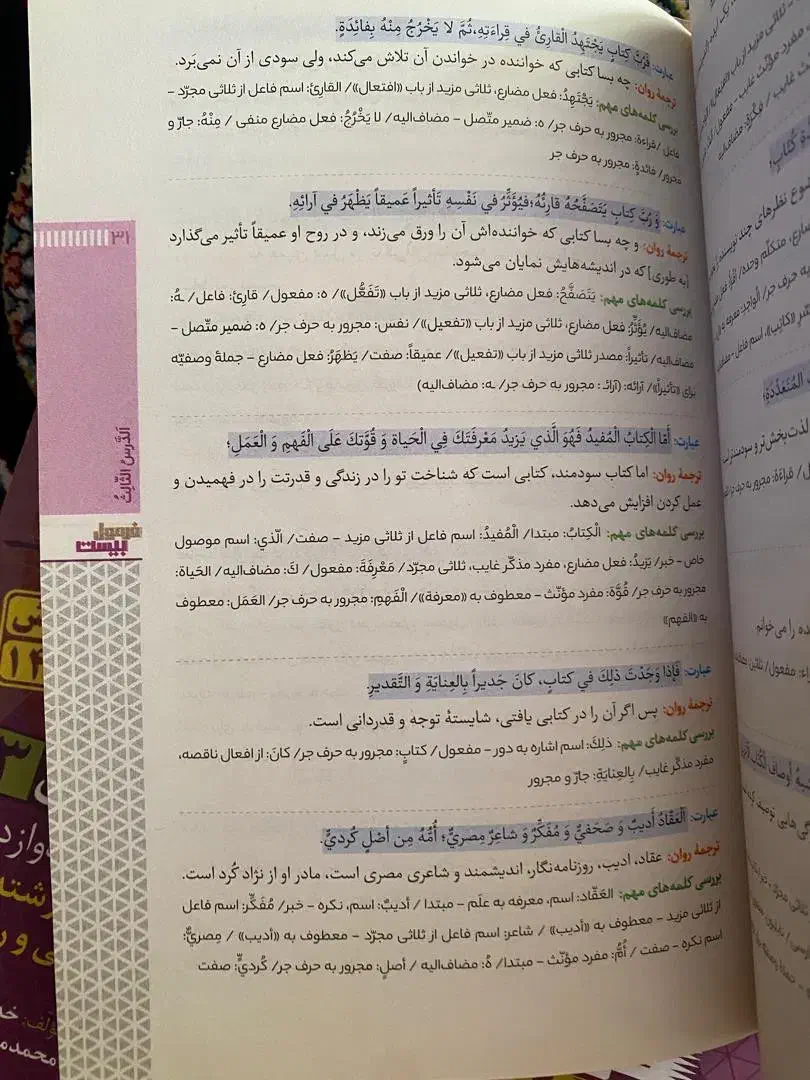 عبارت: فَرُبَّ كِتابٍ يَجْتَهِدُ الْقارِئُ في قِراءَتِهِ،ثُمَّ لا يَخْرُجُ مِنْهُ بِفائِدَةٍ.
ترجمهٔ روان: چه بسا کتابی که خواننده در خواندن آن تلاش می‌کند، ولی سودی از آن نمی‌بَرد.
بررسی کلمه‌های مهم: یَجْتَهِدُ: فعل مضارع، ثلاثی مزید از باب «افتعال»/ القارِئ: اسم فاعل از ثلاثی مجرّد –
فاعل /قراءة: مجرور به حرف جر/ ه: ضمیر متّصل – مضاف‌الیه/ لا یَخْرُجُ: فعل مضارع منفی / مِنْهُ: جارّ و
مجرور/ فائدةٍ: مجرور به حرف جر
عبارت: وَ رُبَّ كِتابٍ يَتَصَفَّحُهُ قارِئُهُ؛فَيُؤَثِّرُ في نَفْسِهِ تَأثيراً عَميقاً يَظْهَرُ في آرائِهِ.
ترجمهٔ روان: و چه بسا کتابی که خواننده‌اش آن را ورق می‌زند، و در روح او عمیقاً تأثیر می‌گذارد
[به طوری] که در اندیشه‌هایش نمایان می‌شود.
بررسی کلمه‌های مهم: یَتَصَفَّحُ: فعل مضارع، ثلاثی مزید از باب «تَفَعُّل»/ ه: مفعول/ قارِئ: فاعل/ ـهُ:
مضاف‌الیه/ یُؤَثِّرُ: فعل مضارع، ثلاثی مزید از باب «تفعیل»/ نفس: مجرور به حرف جر/ ه: ضمیر متّصل –
مضاف‌الیه/ تأثیراً: مصدر ثلاثی مزید از باب «تفعیل»/ عمیقاً: صفت/ یَظهَرُ: فعل مضارع – جملهٔ وصفیّه
برای «تأثیراً»/ آرائه: (آرائـ : مجرور به حرف جر/ ـه: مضاف‌الیه)
عبارت: أمّا الْكِتابُ الْمُفيدُ فَهُوَ الَّذي يَزيدُ مَعْرِفَتَكَ فِي الْحَياة وَ قُوَّتَكَ عَلَى الْفَهمِ وَ الْعَمَلِ؛
ترجمهٔ روان: اما کتاب سودمند، کتابی است که شناخت تو را در زندگی و قدرتت را در فهمیدن و
عمل کردن افزایش می‌دهد.
بررسی کلمه‌های مهم: الْکِتابُ: مبتدا/ الْمُفیدُ: اسم فاعل از ثلاثی مزید – صفت/ الّذي: اسم موصول
خاص – خبر/ یَزیدُ: فعل مضارع، مفرد مذکّر غایب، ثلاثی مجرّد/ مَعْرِفَةَ: مفعول/ كَ: مضاف‌الیه/ الحَیاة:
مجرور به حرف جر/ قُوَّةَ: مفرد مؤنّث – معطوف به «معرفة»/ الْفَهمِ: مجرور به حرف جر/ العَمَل: معطوف
به «الفهم»
عبارت: فَإذا وَجَدْتَ ذلِكَ في كِتابٍ، كانَ جَديراً بِالعِنايَةِ وَ التَّقديرِ.
ترجمهٔ روان: پس اگر آن را در کتابی یافتی، شایستهٔ توجه و قدردانی است.
بررسی کلمه‌های مهم: ذلِكَ: اسم اشاره به دور – مفعول/ کتابٍ: مجرور به حرف جر/ کانَ: از افعال ناقصه،
مفرد مذکّر غایب/ بِالعِنایَةِ: جارّ و مجرور
عبارت: اَلْعَقّادُ أديبٌ وَ صَحَفيٌّ وَ مُفَكِّرٌ وَ شاعِرٌ مِصريٌّ؛ أُمُّهُ مِن أصْلٍ كُرديٍّ.
ترجمهٔ روان: عقاد، ادیب، روزنامه‌نگار، اندیشمند و شاعری مصری است، مادر او از نژاد کُرد است.
بررسی کلمه‌های مهم: العَقّاد: اسم، معرفه به عَلَم – مبتدا / أدیبٌ: اسم، نکره – خبر/ مُفَکِّر: اسم فاعل
از ثلاثی مزید – معطوف به «أدیب» / شاعر: اسم فاعل از ثلاثی مجرّد – معطوف به «أدیب» / مِصريٌّ:
اسم نکره – صفت / أُمُّ: مفرد مؤنّث – مبتدا/ هُ: مضاف‌الیه / أصلٍ: مجرور به حرف جر/ کُرديٍّ: صفت
۳۱
اَلدَّرسُ الثّالِثُ
فرمول
بیست